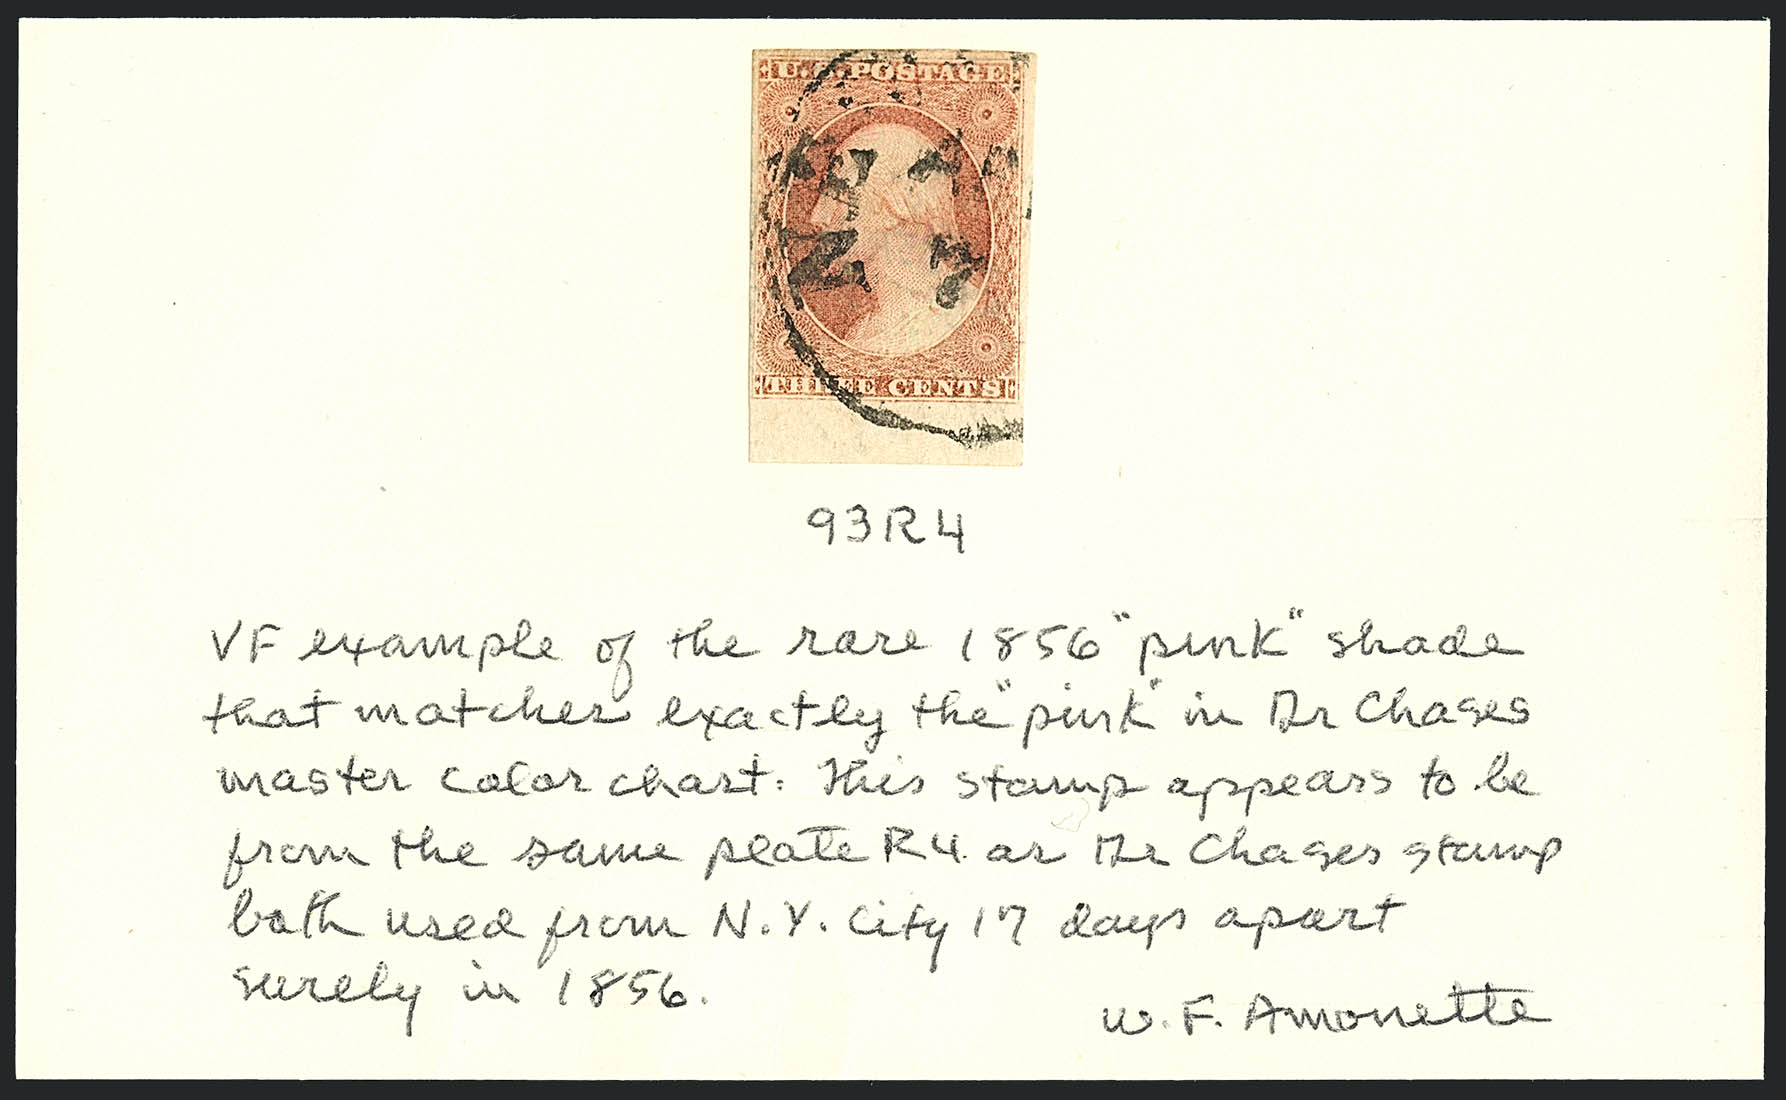 U.S. POSTAGE
THREE CENTS
93R4
VF example of the rare 1856 "pink" shade
that matches exactly the "pink" in Dr Chases
master color chart. This stamp appears to be
from the same plate R4 as Dr Chases stamp
both used from N.Y. City 17 days apart
surely in 1856.
W.F. Amonette